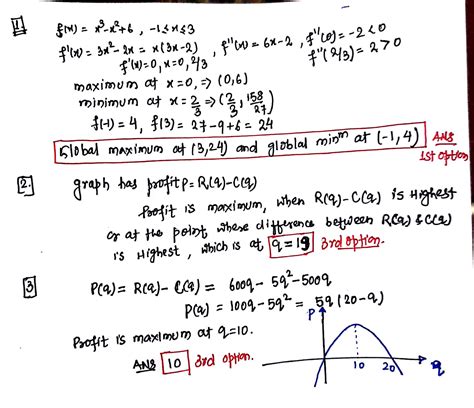 1. f(x) = x³-x²+6, -1≤x≤3
f'(x) = 3x²-2x = x(3x-2), f''(x) = 6x-2, f''(0) = -2<0
f'(x)=0, x=0, 2/3 f''(2/3) = 2>0
maximum at x=0, ⇒ (0,6)
minimum at x = 2/3 ⇒ (2/3, 158/27)
f(-1) = 4, f(3) = 27-9+6 = 24
Global maximum at (3,24) and globlal minᵐ at (-1,4) Ans 1st option
2. graph has profit P = R(q)-C(q)
Profit is maximum, when R(q)-C(q) is Highest
or at the point where difference between R(q) & C(q)
is Highest, which is at q=19 3rd option.
3 P(q) = R(q)-C(q) = 600q-5q²-500q
P(q) = 100q-5q² = 5q(20-q)
Profit is maximum at q=10.
Ans 10 3rd option.
P
10 20 q